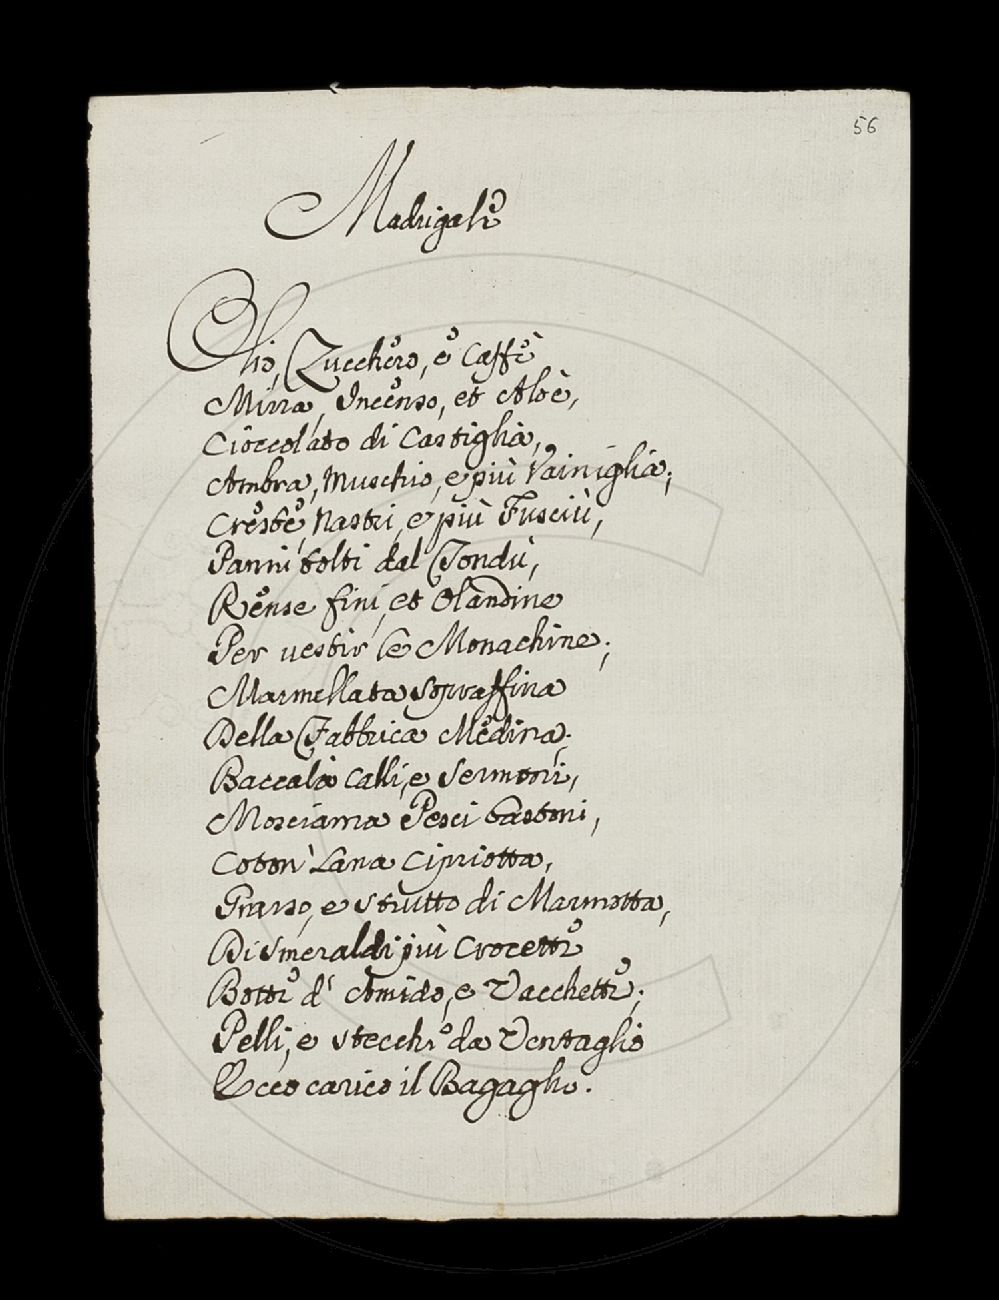 56
Madrigale
Olio, Zucchero, e Caffè
Mirra, Incenso, et Aloè,
Cioccolato di Castiglia,
Ambra, Muschio, e più Vainiglia;
Creste, Nastri, e più Fusciù,
Panni tolti dal Tondù,
Rense fini, et Olandine
Per vestir le Monachine;
Marmellata Sopraffina
Della Fabbrica Medina;
Baccalà Calli, e Sermoni,
Mosciama Pesci bastoni,
Coton Lana Cipriotta,
Grasso, e strutto di Marmotta,
Di Smeraldi più Crocette
Botte d' Comido, e Vacchette;
Pelli, e stecche da Ventaglio
Ecco carico il Bagaglio.